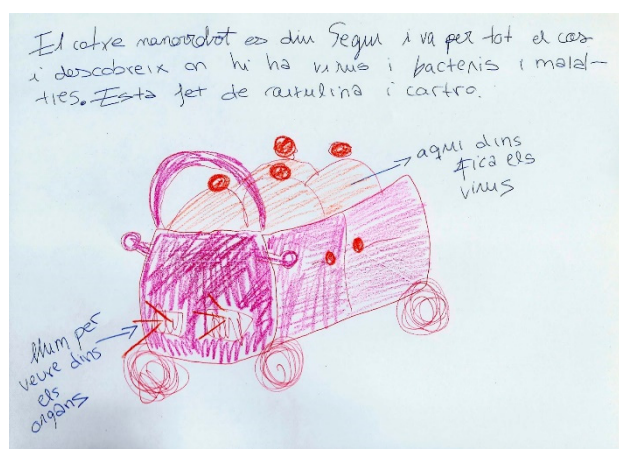 El cotxe nanorobot es diu Segui i va per tot el cos
i descobreix on hi ha virus i bacteris i malal-
ties. Esta fet de cartulina i cartro.
aqui dins
fica els
virus
llum per
veure dins
els
organs